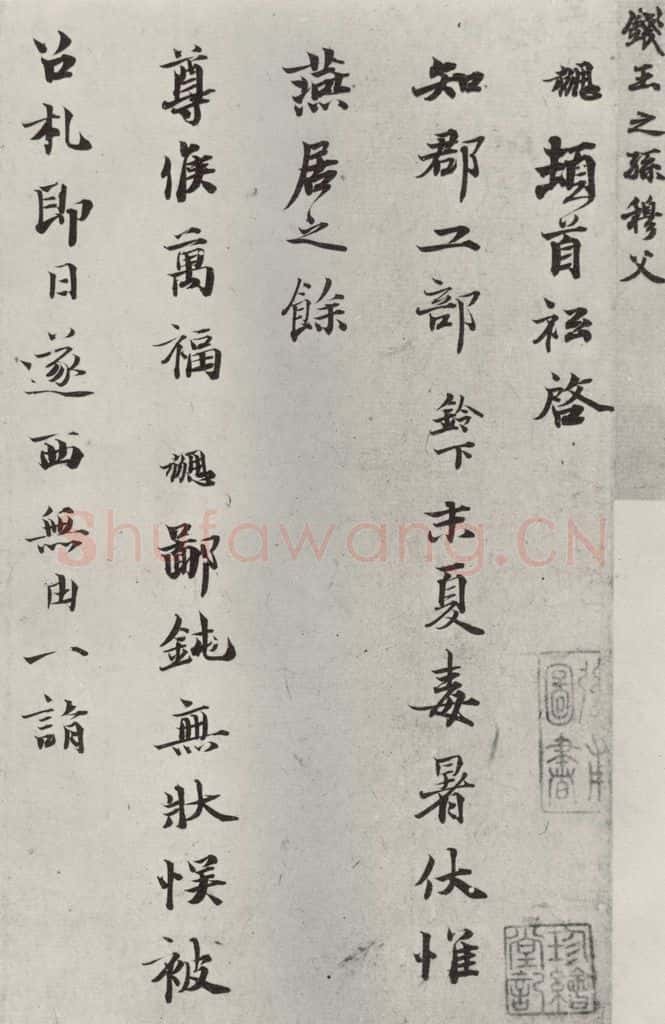 錢王之孫穆父
勰頓首祗啓
知郡工部 鈴下末夏毒暑伏惟
燕居之餘
尊候萬福 勰鄙鈍無狀悮被
召札即日遂西無由一詣
圖書
珍繪堂記
Shufawang.CN